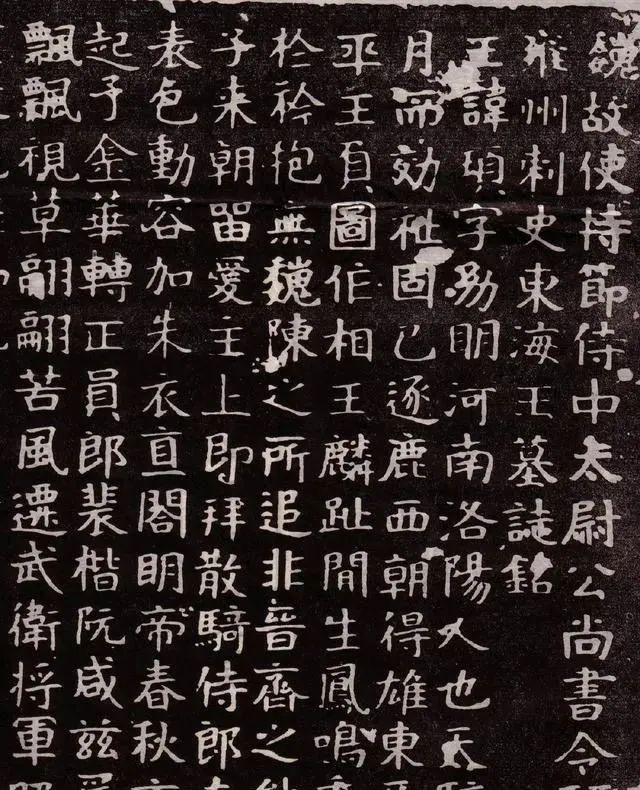 魏故使持節侍中太尉公尚書令
雍州刺史東海王墓誌銘
王諱頊字勗明河南洛陽人也
月而効祉固已逐鹿西朝得雄東
平王負圖作相王麟趾間生鳳鳴
於衿抱無魏陳之所追非晉齊之
子来朝留愛主上即拜散騎侍郎
表色動容加朱衣直閤明帝春秋
起予金華轉正員郎裴楷阮咸兹
飄飄視草翩翩苦風遷武衛将軍